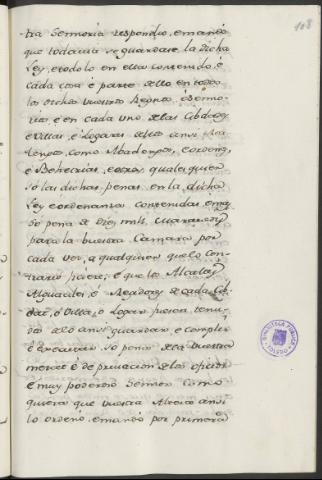 108
tra Sennoria respondio, e mandó
que todavia se guardase la dicha
Ley, e todo lo en ella contenido, é
cada cosa é parte dello en todos
los dichos vuestros Regnos, é Senno-
rios, e en cada uno de las Cibdades,
e Villas, é Logares dellos ansi Rea-
lengos, como Abadengos, e ordenes,
é Behetrias, e otros qualesquier
so las dichas penas en la dicha
Ley e ordenanzas contenidas, e mas
so pena de Diez mill Maravedis
para la vuestra Camara por
cada vez, a qualquiera que lo con-
trario ficiere; é que los Alcaldes
Alguaciles, é Regidores de cada Cib-
dat, o Villa, o Logar fuesen tenu-
dos de lo ansi guardar, e complir
é executar so pena de la vuestra
merced é de privacion de los oficios.
E muy poderoso Sennor como
quiera que vuestra Alteza ansi
lo ordenó, e mandó por primera
BIBLIOTECA PUBLICA
TOLEDO